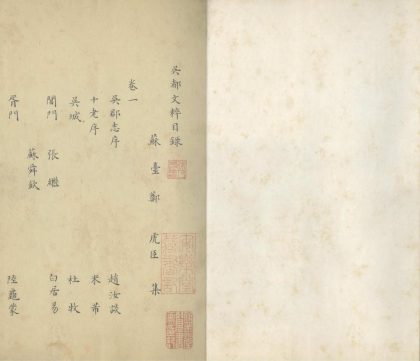 吳都文粹目錄
蘇臺鄭虎臣集
卷一
吳郡志序 趙汝談
十老序 米芾
吳城 杜牧
閶門 張繼 白居易
蘇舜欽
胥門 陸龜蒙